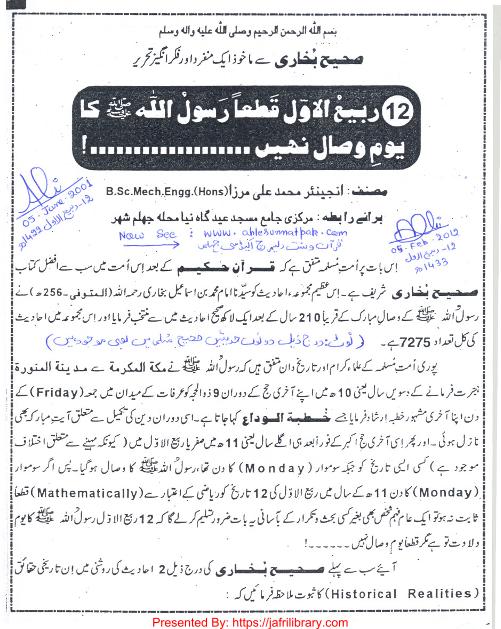 بسم الله الرحمن الرحیم وصلی الله علیه واله وسلم
صحیح بُخاری سے ماخوذ ایک منفرد اور فکر انگیز تحریر
12 ربیعُ الاوّل قطعاً رسولُ اللہ ﷺ کا
یومِ وصال نہیں ..................!
مصنف : انجینئر محمد علی مرزا B.Sc.Mech.Engg.(Hons)
برائے رابطہ : مرکزی جامع مسجد عید گاہ نیا محلہ جھلم شھر
Now See : www.ahlesunnatpak.com
Ali
05-June-2001
05-Feb-2012
اِس بات پر اُمتِ مُسلمہ متفق ہے کہ قرآنِ حکیم کے بعد اِس اُمت میں سب سے افضل کتاب
صحیح بُخاری شریف ہے۔ اِس عظیم مجموعہ احادیث کو سیّدُنا امام محمد بن اسماعیل بخاری رحمہ اللہ (المتوفی۔ 256ھ) نے
رسولُ اللہ ﷺ کے وصالِ مبارک کے قریباً 210 سال کے بعد ایک لاکھ صحیح احادیث میں سے منتخب فرمایا اور اِس مجموعہ میں احادیث
کی کل تعداد 7275 ہے۔ (نوٹ: درج ذیل دونوں حدیثیں صحیح مسلم میں بھی موجود ہیں)
پوری اُمتِ مُسلمہ کے علماء کرام اور تاریخ دان متفق ہیں کہ رسولُ اللہ ﷺ نے مکة المکرمة سے مدینة المنورة
ہجرت فرمانے کے دسویں سال یعنی 10ھ میں اپنے آخری حج کے دوران 9 ذوالحجہ کو عرفات کے میدان میں جمعہ (Friday) کے
دن اپنا آخری مشہور خطبہ ارشاد فرمایا جسے خُطبةُ الوداع کہا جاتا ہے۔ اسی دوران دین کی تکمیل سے متعلق آیتِ مبارکہ بھی
نازل ہوئی۔ اور پھر اِسی آخری حجِ اکبر کے فوراً بعد ہی اگلے سال یعنی 11ھ میں صفر یا ربیع الاوّل میں (کیونکہ مہینے سے متعلق اختلاف
موجود ہے) کسی ایسی تاریخ کو جبکہ سوموار (Monday) کا دن تھا رسولُ اللہ ﷺ کا وصال ہو گیا۔ پس اگر سوموار
(Monday) کا دن 11ھ کے سال میں ربیع الاوّل کی 12 تاریخ کو ریاضی کے اعتبار سے (Mathematically) قطعاً
ثابت نہ ہو تو ایک عام فہم شخص بھی بغیر کسی بحث و تکرار کے بآسانی یہ بات ضرور تسلیم کر لے گا کہ 12 ربیع الاوّل رسولُ اللہ ﷺ کا یومِ
ولادت تو ہے مگر قطعاً یومِ وصال نہیں......!
آئیے سب سے پہلے صحیح بُخاری کی درج ذیل 2 احادیث کی روشنی میں اِن تاریخی حقائق
(Historical Realities) کا ثبوت ملاحظہ فرمائیں کہ :
Presented By: https://jafrilibrary.com